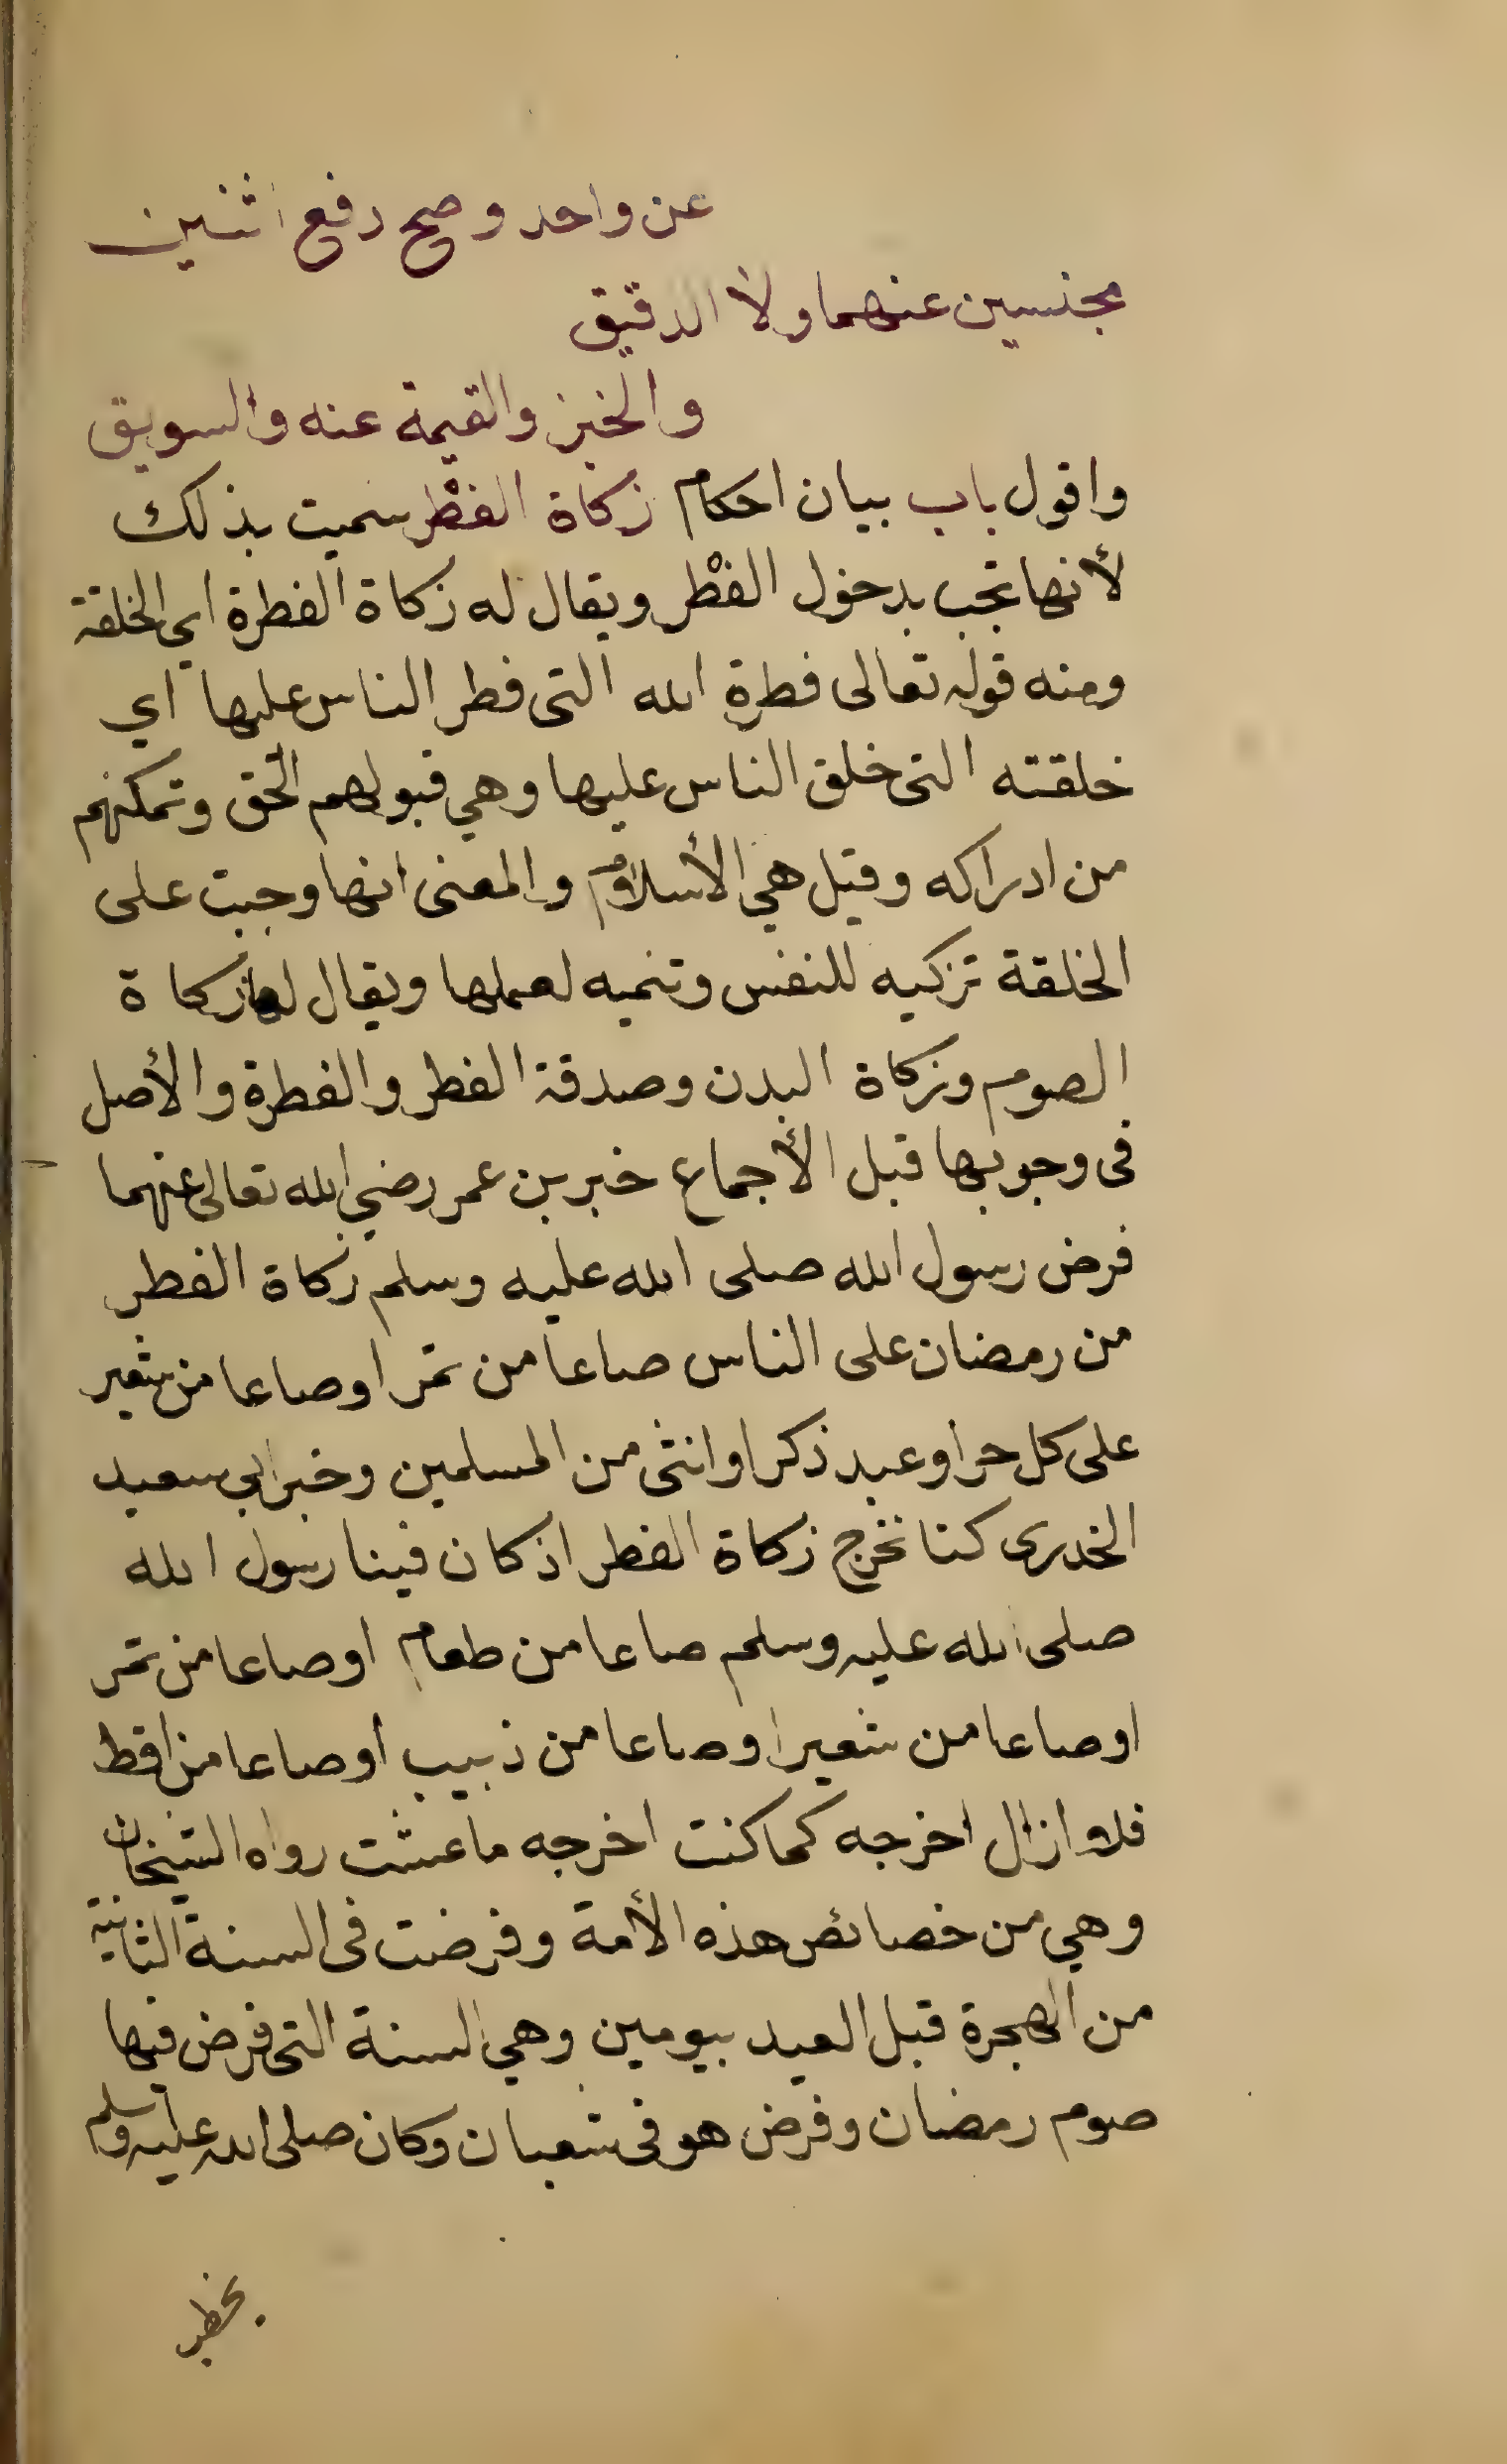 عن واحد وصح دفع اثنين
مجنسين عنهما ولا الدقيق
والخبز والقيمة عنه والسويق
واقول باب بيان احكام زكاة الفطْر سميت بذلك
لأنها تجب بدخول الفطْر ويقال له زكاة الفطرة اي الخلقة
ومنه قوله تعالى فطرة الله التى فطر الناس عليها اي
خلقته التى خلق الناس عليها وهي قبولهم الحق وتمكنهم
من ادراكه وقيل هي الأسلام والمعنى انها وجبت على
الخلقة تزكيه للنفس وتنميه لعملها ويقال لها زكاة
الصوم وزكاة البدن وصدقة الفطر والفطرة والأصل
فى وجوبها قبل الأجماع خبر بن عمر رضي الله تعالى عنهما
فرض رسول الله صلى الله عليه وسلم زكاة الفطر
من رمضان على الناس صاعا من تمر اوصاعا من شعير
على كل حر او عبد ذكر او انثى من المسلمين وخبر ابي سعيد
الخدرى كنا نخرج زكاة الفطر اذ كان فينا رسول الله
صلى الله عليه وسلم صاعا من طعام اوصاعا من تمر
اوصاعا من شعير اوصاعا من زبيب اوصاعا من اقط
فلا ازال اخرجه كما كنت اخرجه ما عشت رواه الشيخان
وهي من خصائص هذه الأمة وفرضت فى السنة الثانية
من الهجرة قبل العيد بيومين وهي السنة التى فرض فيها
صوم رمضان وفرض هو فى شعبان وكان صلى الله عليه وسلم
يخطب